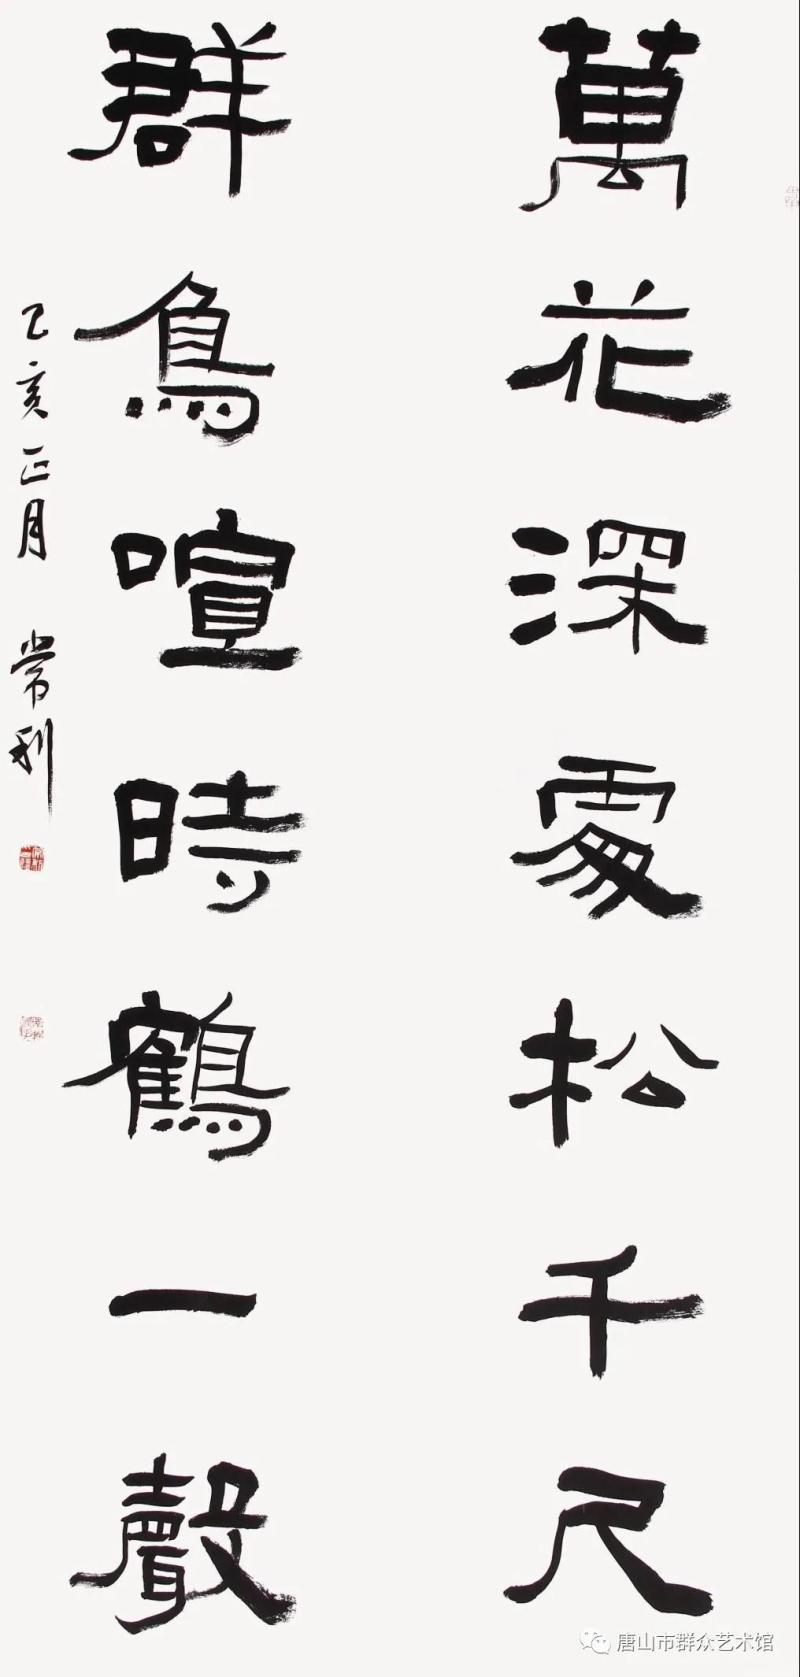 萬花深處松千尺
群鳥喧時鶴一聲
乙亥正月 常利
唐山市群众艺术馆